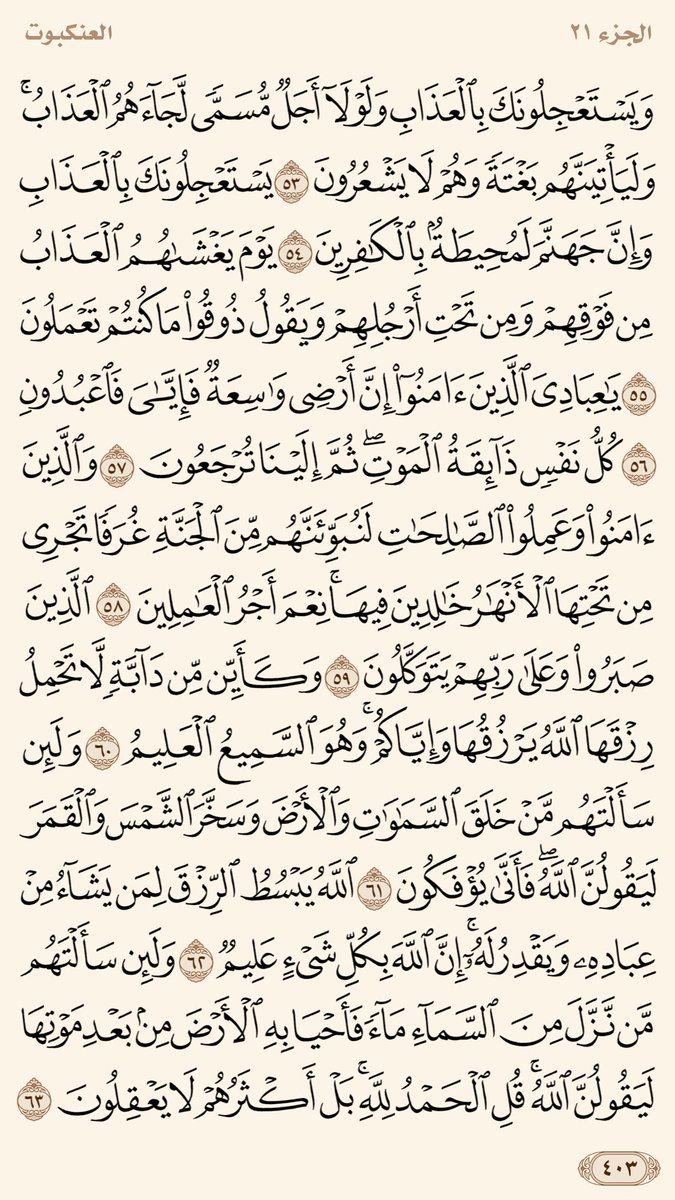 الجزء ٢١
العنكبوت
وَيَسْتَعْجِلُونَكَ بِالْعَذَابِ وَلَوْلَا أَجَلٌ مُّسَمًّى لَّجَاءَهُمُ الْعَذَابُ ۚ
وَلَيَأْتِيَنَّهُم بَغْتَةً وَهُمْ لَا يَشْعُرُونَ ٥٣ يَسْتَعْجِلُونَكَ بِالْعَذَابِ
وَإِنَّ جَهَنَّمَ لَمُحِيطَةٌ بِالْكَافِرِينَ ٥٤ يَوْمَ يَغْشَاهُمُ الْعَذَابُ
مِن فَوْقِهِمْ وَمِن تَحْتِ أَرْجُلِهِمْ وَيَقُولُ ذُوقُوا مَا كُنتُمْ تَعْمَلُونَ
٥٥ يَا عِبَادِيَ الَّذِينَ آمَنُوا إِنَّ أَرْضِي وَاسِعَةٌ فَإِيَّايَ فَاعْبُدُونِ
٥٦ كُلُّ نَفْسٍ ذَائِقَةُ الْمَوْتِ ۖ ثُمَّ إِلَيْنَا تُرْجَعُونَ ٥٧ وَالَّذِينَ
آمَنُوا وَعَمِلُوا الصَّالِحَاتِ لَنُبَوِّئَنَّهُم مِّنَ الْجَنَّةِ غُرَفًا تَجْرِي
مِن تَحْتِهَا الْأَنْهَارُ خَالِدِينَ فِيهَا ۚ نِعْمَ أَجْرُ الْعَامِلِينَ ٥٨ الَّذِينَ
صَبَرُوا وَعَلَىٰ رَبِّهِمْ يَتَوَكَّلُونَ ٥٩ وَكَأَيِّن مِّن دَابَّةٍ لَّا تَحْمِلُ
رِزْقَهَا اللَّهُ يَرْزُقُهَا وَإِيَّاكُمْ ۚ وَهُوَ السَّمِيعُ الْعَلِيمُ ٦٠ وَلَئِن
سَأَلْتَهُم مَّنْ خَلَقَ السَّمَاوَاتِ وَالْأَرْضَ وَسَخَّرَ الشَّمْسَ وَالْقَمَرَ
لَيَقُولُنَّ اللَّهُ ۖ فَأَنَّىٰ يُؤْفَكُونَ ٦١ اللَّهُ يَبْسُطُ الرِّزْقَ لِمَن يَشَاءُ مِنْ
عِبَادِهِ وَيَقْدِرُ لَهُ ۚ إِنَّ اللَّهَ بِكُلِّ شَيْءٍ عَلِيمٌ ٦٢ وَلَئِن سَأَلْتَهُم
مَّن نَّزَّلَ مِنَ السَّمَاءِ مَاءً فَأَحْيَا بِهِ الْأَرْضَ مِن بَعْدِ مَوْتِهَا
لَيَقُولُنَّ اللَّهُ ۚ قُلِ الْحَمْدُ لِلَّهِ ۚ بَلْ أَكْثَرُهُمْ لَا يَعْقِلُونَ ٦٣
٤٠٣